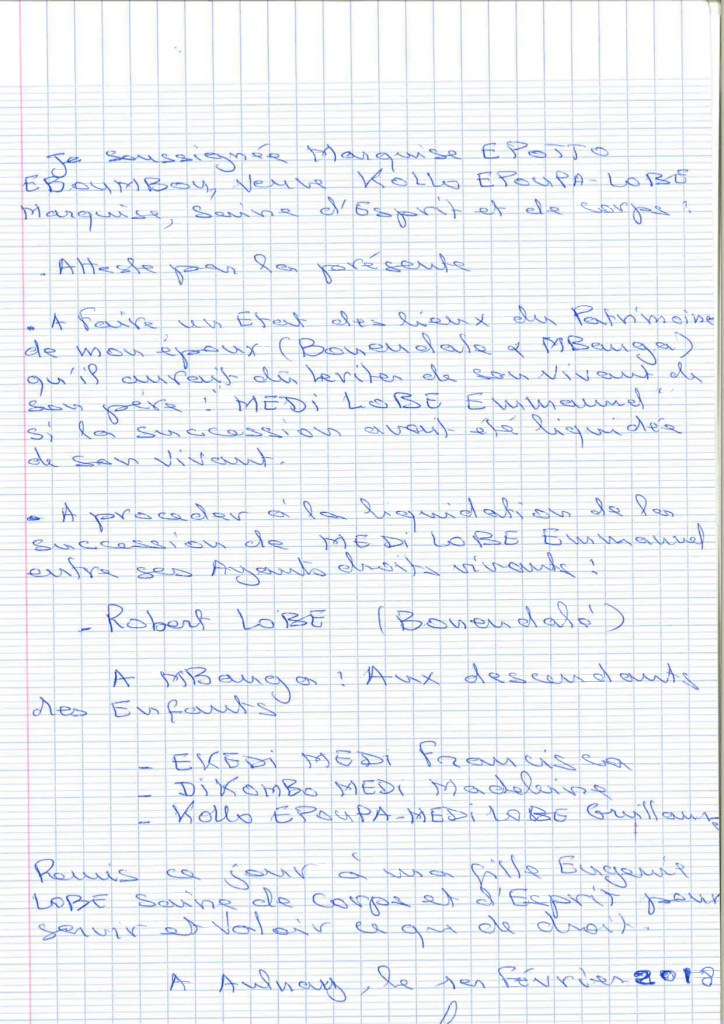 Je soussignée Marquise EPOTTO
EBOUMBOU, Veuve KOLLO EPOUPA-LOBE
Marquise, Saine d'Esprit et de corps :
- Atteste par la présente
- A faire un Etat des lieux du Patrimoine
de mon époux (Bonendale & MBanga)
qu'il aurait dû heriter de son vivant de
son père : MEDI LOBE Emmanuel
si la succession avait été liquidée
de son vivant.
- A proceder à la liquidation de la
succession de MEDI LOBE Emmanuel
entre ses Ayants droits vivants :
- Robert LOBE (Bonendalé)
A MBanga : Aux descendants
des Enfants
- EKEDI MEDI Francisca
- DIKOMBO MEDI Madeleine
- KOLLO EPOUPA-MEDI LOBE Guyllaume
Remis ce jour à ma fille Eugenie
LOBE Saine de Corps et d'Esprit pour
servir et Valoir ce que de droit.
A Aulnay, le 1er février 2018